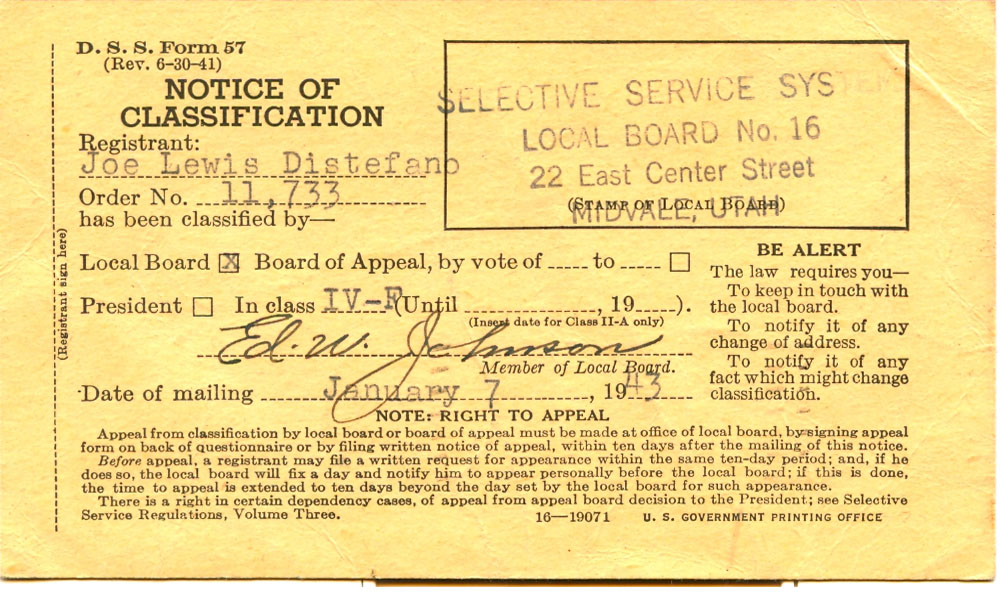 D. S. S. Form 57
(Rev. 6-30-41)
NOTICE OF
CLASSIFICATION
Registrant:
Joe Lewis Distefano
Order No. 11,733
has been classified by—
SELECTIVE SERVICE SYSTEM
LOCAL BOARD No. 16
22 East Center Street
(STAMP OF LOCAL BOARD)
MIDVALE, UTAH
(Registrant sign here)
Local Board ☒ Board of Appeal, by vote of ..... to ..... ☐
President ☐ In class IV-F (Until ...................., 19.....).
(Insert date for Class II-A only)
Ed. W. Johnson
Member of Local Board.
Date of mailing January 7, 1943
BE ALERT
The law requires you—
To keep in touch with
the local board.
To notify it of any
change of address.
To notify it of any
fact which might change
classification.
NOTE: RIGHT TO APPEAL
Appeal from classification by local board or board of appeal must be made at office of local board, by signing appeal
form on back of questionnaire or by filing written notice of appeal, within ten days after the mailing of this notice.
Before appeal, a registrant may file a written request for appearance within the same ten-day period; and, if he
does so, the local board will fix a day and notify him to appear personally before the local board; if this is done,
the time to appeal is extended to ten days beyond the day set by the local board for such appearance.
There is a right in certain dependency cases, of appeal from appeal board decision to the President; see Selective
Service Regulations, Volume Three.
16—19071 U. S. GOVERNMENT PRINTING OFFICE